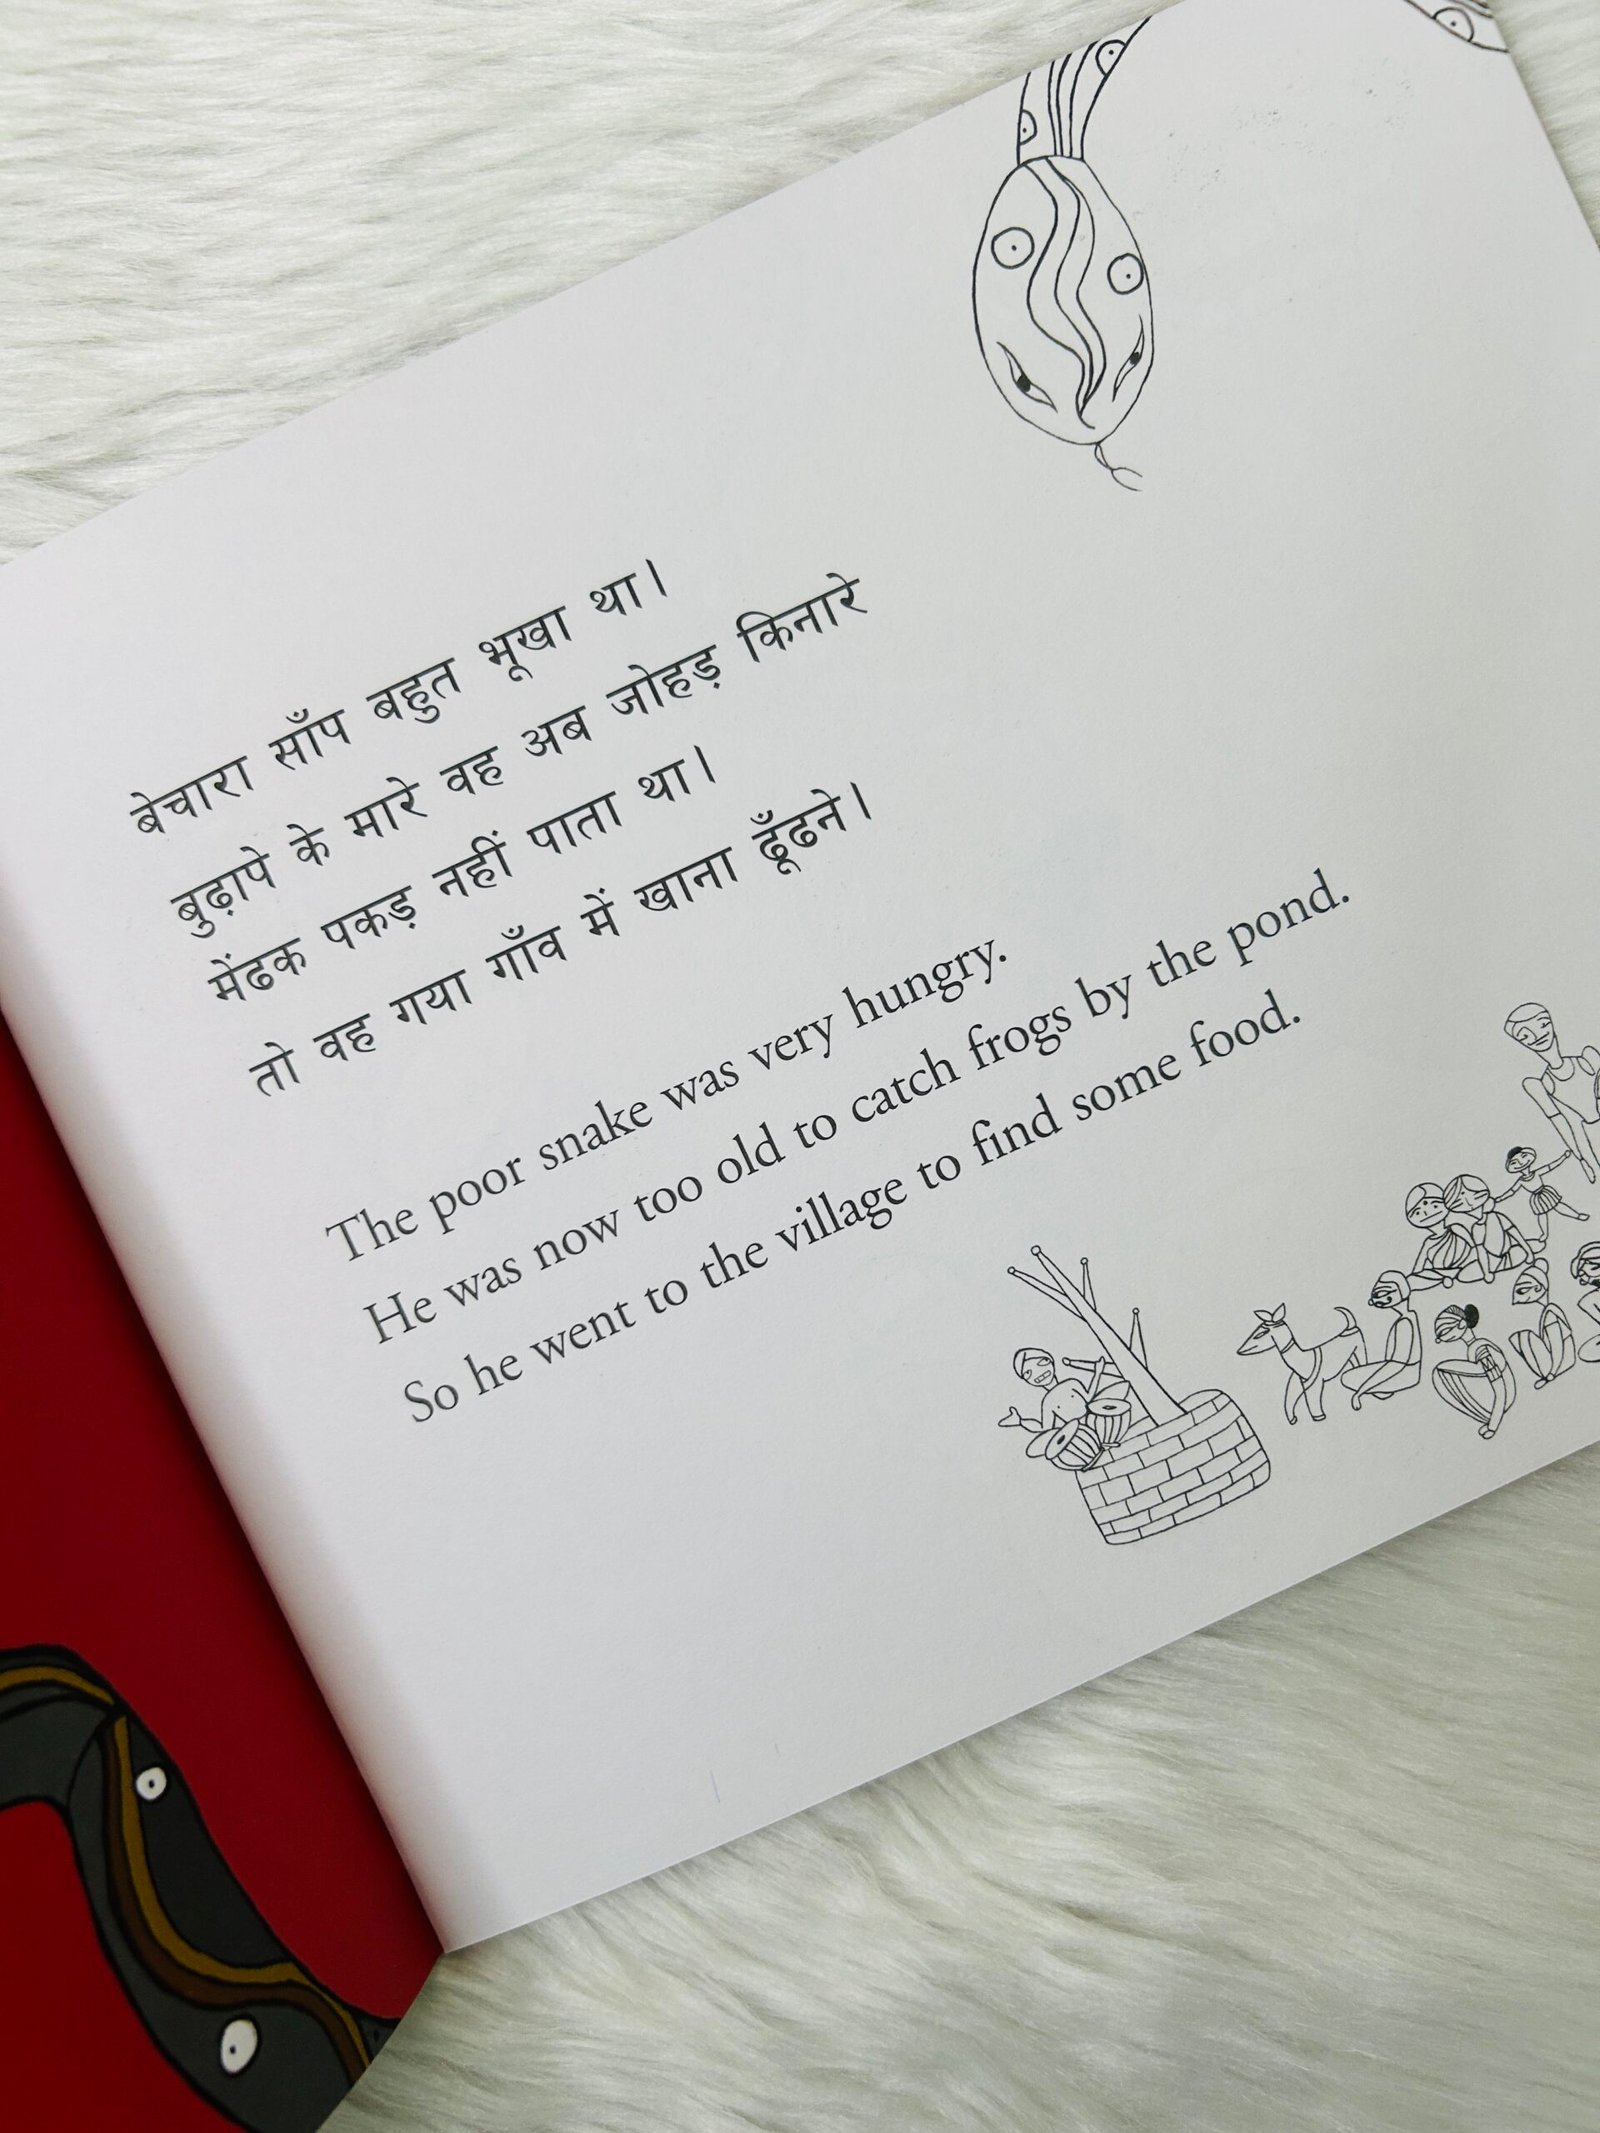 बेचारा साँप बहुत भूखा था।
बुढ़ापे के मारे वह अब जोहड़ किनारे
मेंढक पकड़ नहीं पाता था।
तो वह गया गाँव में खाना ढूँढने।
The poor snake was very hungry.
He was now too old to catch frogs by the pond.
So he went to the village to find some food.